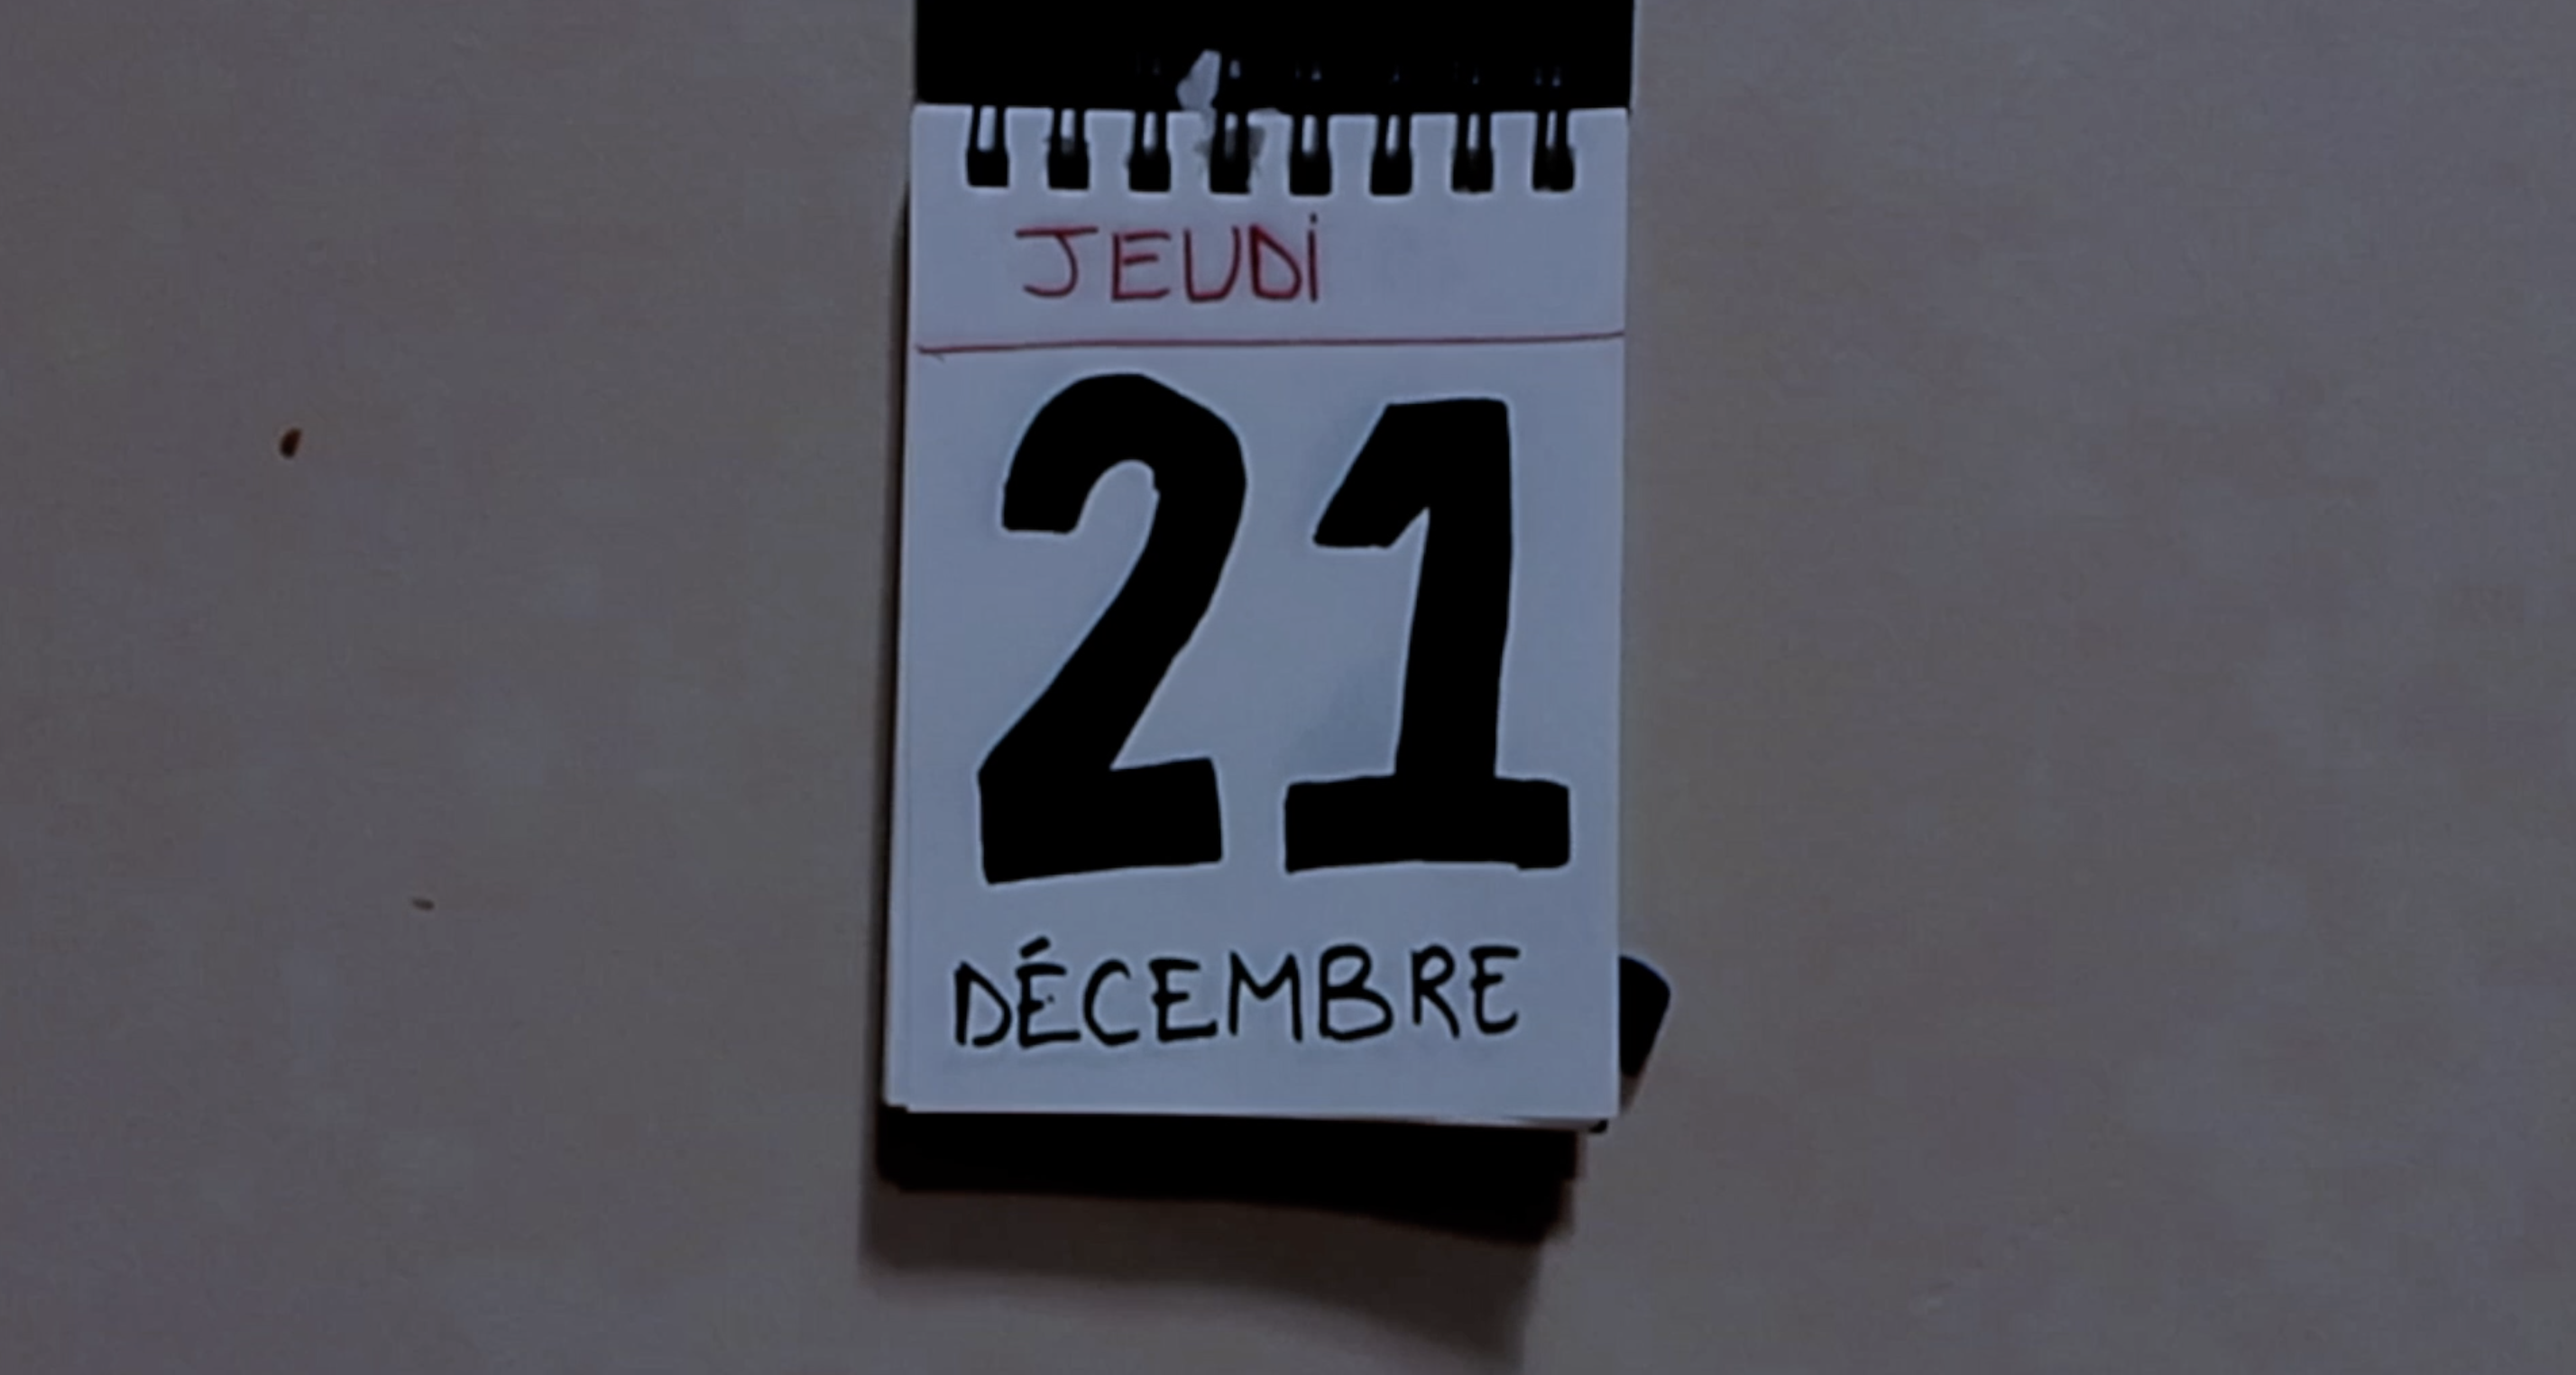 JEUDi
21
DÉCEMBRE